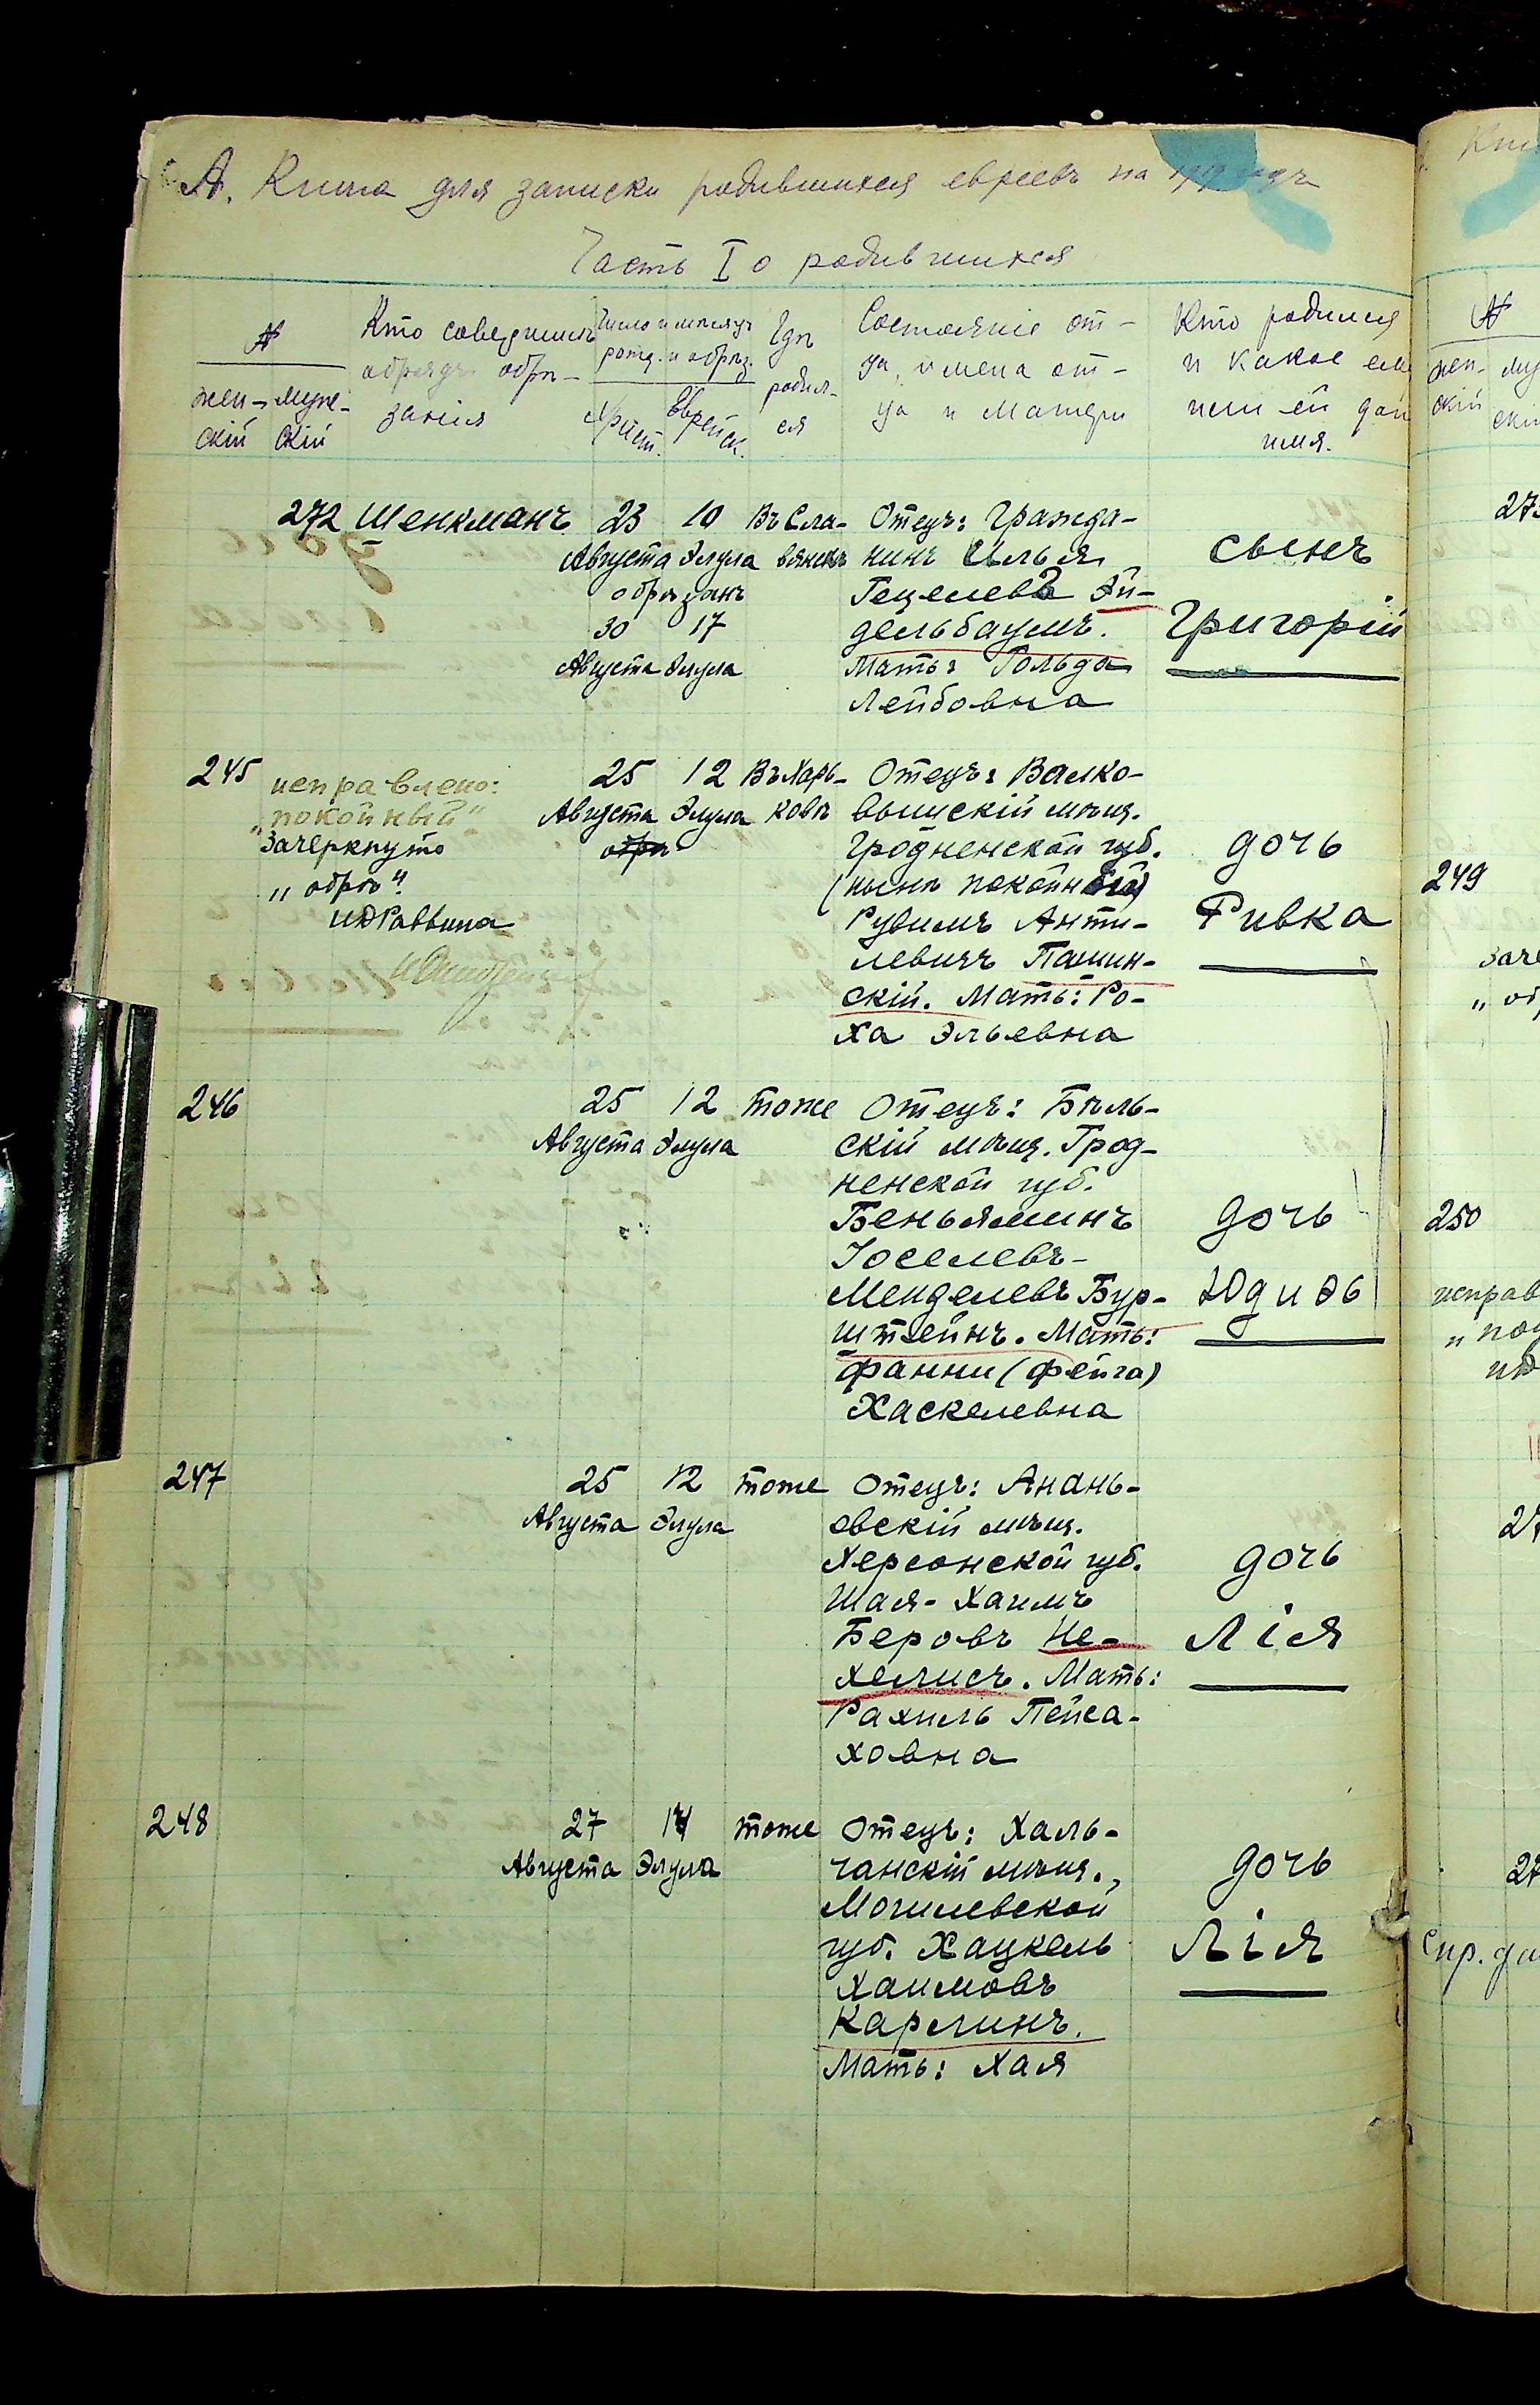 А. Книга для записки родившихся евреевъ на 1919 годъ
Часть I о родившихся
№
жен-
скій
муже-
скій
Кто совершилъ
обрядъ обрѣ-
занія
Число и мѣсяцъ
рожд. и обрѣз.
Христ.
Еврейск.
Гдѣ
родил-
ся
Состояніе от-
ца, имена от-
ца и матери
Кто родился
и какое ему
или ей дано
имя.
272 Шенкманъ 23 10 Въ Сла-
Августа Элула вянскѣ
обрѣзанъ
30 17
Августа Элула
Отецъ: Гражда-
нинъ Илья
Гецелевъ Эй-
дельбаумъ.
Мать: Гольда
Лейбовна
сынъ
Григорій
245
исправлено:
„покойный"
Зачеркнуто
„обрѣ".
ИД Раввина
25 12 Въ Харь-
Августа Элула ковѣ
обрѣ
Отецъ: Волко-
вышскій мѣщ.
Гродненской губ.
(нынѣ покойный)
Рувимъ Анти-
левичъ Пашин-
скій. Мать: Ро-
ха Эльевна
дочь
Ривка
246
25 12 тоже
Августа Элула
Отецъ: Бѣль-
скій мѣщ. Грод-
ненской губ.
Беньяминъ
Іоселевъ-
Менделевъ Бур-
штейнъ. Мать:
Фанни (Фейга)
Хаскелевна
дочь
Юдиѳь
247
25 12 тоже
Августа Элула
Отецъ: Анань-
евскій мѣщ.
Херсонской губ.
Шая-Хаимъ
Беровъ Не-
хелисъ. Мать:
Рахиль Пейса-
ховна
дочь
Лія
248
27 14 тоже
Августа Элула
Отецъ: Халь-
чанскій мѣщ.,
Могилевской
губ. Хацкель
Хаимовъ
Карлинъ.
Мать: Хая
дочь
Лія
№
жен-
скій
249
„об
250
исправ